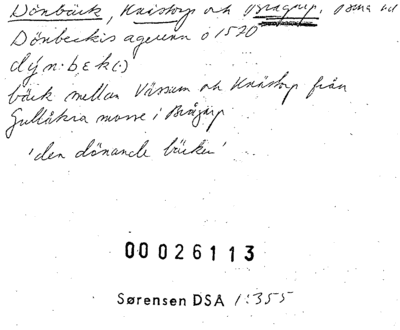 Dönbäck, Knästorp och Brågarp.
Dönbeckis agerenn o 1570
dýn·bɛk(·)
bäck mellan Vässum och Knästorp från
Gullåkra mosse i Brågarp
'den dönande bäcken'
00026113
Sørensen DSA 1:355